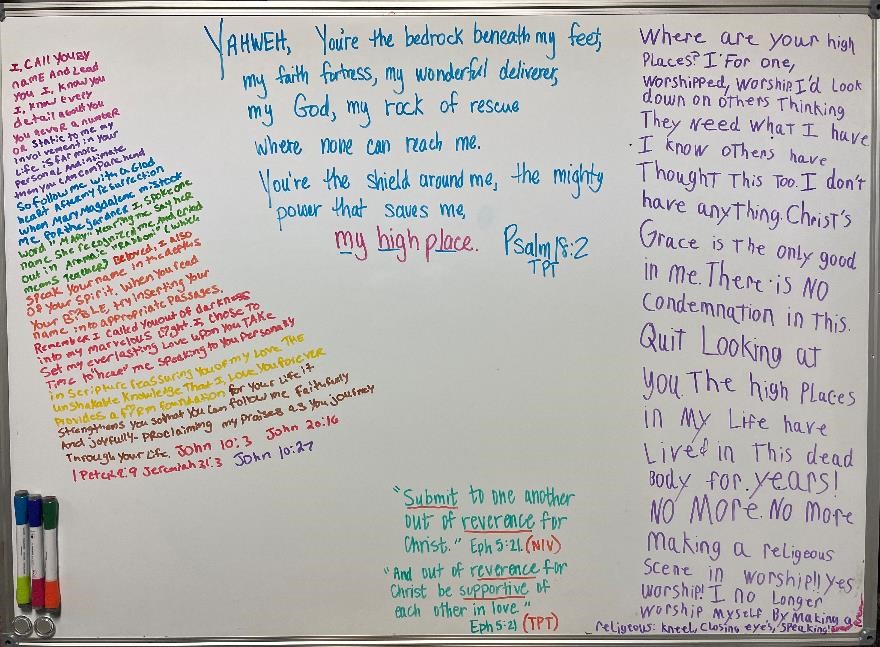 I, CAll You By
name And Lead
you I, know you
I, know every
detail about you
You never a number
or Static to me my
involvement in your
Life is far more
Personal And intimate
then you can comprehend
So follow me with a Glad
heart After my resurrection
when Mary Magdalene mistook
me for the gardner I, spoke one
word "MARY" Hearing me say her
name she recognized me And cried
out in Aramaic "Rabboni" (which
means teacher) Beloved, I also
speak your name in the depths
of your Spirit. When you read
your BiBLE, try inserting your
name into appropriate passages.
Remember I called you out of darkness
into my marvelous light. I, chose To
Set my everlasting Love upon you TAKE
Time to "hear" me speaking to you Personally
in Scripture reassuring you of my love. The
unshakable Knowledge That I Love you forever
Provides a firm foundation for your life it
Strengthens you so that you can follow me faithfully
And joyfully-proclaiming my praises as you journey
Through your Life. John 10:3 John 20:16
1 Peter 2:9 Jeremiah 31:3 John 10:27
YAHWEH, You're the bedrock beneath my feet,
my faith fortress, my wonderful deliverer,
my God, my rock of rescue
where none can reach me.
You're the shield around me, the mighty
power that saves me,
my high place. Psalm 18:2
TPT
"Submit to one another
out of reverence for
Christ." Eph 5:21 (NIV)
"And out of reverence for
Christ be supportive of
each other in love."
Eph 5:21 (TPT)
Where are your high
Places? I For one,
worshipped, worship. I'd Look
down on others Thinking
They Need What I have
I know others have
Thought This Too. I don't
have anything. Christ's
Grace is the only good
in me. There is NO
Condemnation in This.
Quit Looking at
you. The high Places
in My Life have
Lived in This dead
Body for years!
NO More. No More
Making a religeous
Scene in worship!! Yes
Worship! I no Longer
Worship Myself By Making a
religeous: kneel, Closing eye's, Speaking!